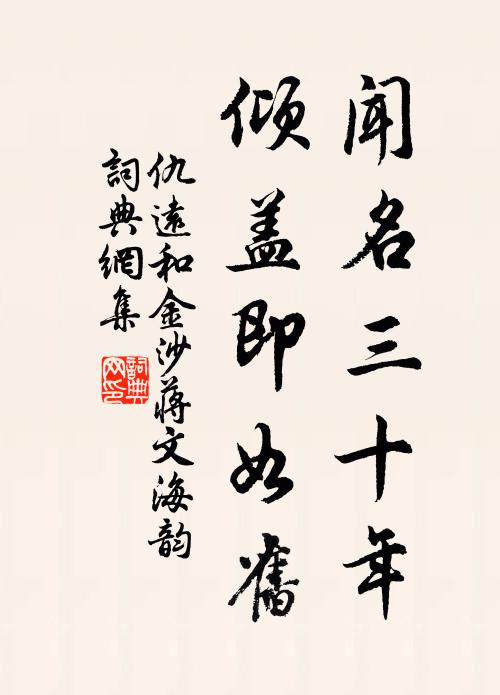 闻名三十年
倾盖即如舊
仇遠和金沙蒋文海韵
詞典網集
詞典
网印